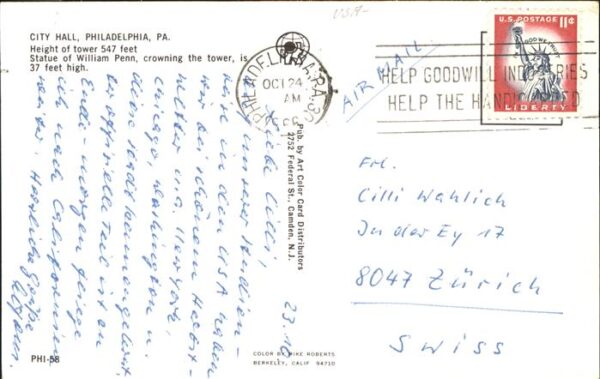 USA
CITY HALL, PHILADELPHIA, PA.
Height of tower 547 feet
Statue of William Penn, crowning the tower, is
37 feet high.
PHILADELPHIA, PA
OCT 24
AM
U.S. POSTAGE 11¢
IN GOD WE TRUST
LIBERTY
HELP GOODWILL INDUSTRIES
HELP THE HANDICAPPED
AIR MAIL
Pub. by Art Color Card Distributors
2752 Federal St., Camden, N.J.
23.10.
Liebe Cilli,
unserer Studien-
in den USA haben
wir bei schönem Herbst-
wetter u.a. New York,
Chicago, Washington u.
diese Stadt kennengelernt.
Der offizielle Teil ist am
Ende - morgen fliege
ich nach Californien
weiter. Herzliche Grüße
Frl.
Cilli Wahlich
In der Ey 17
8047 Zürich
Swiss
PHI-58
COLOR BY MIKE ROBERTS
BERKELEY, CALIF 94710